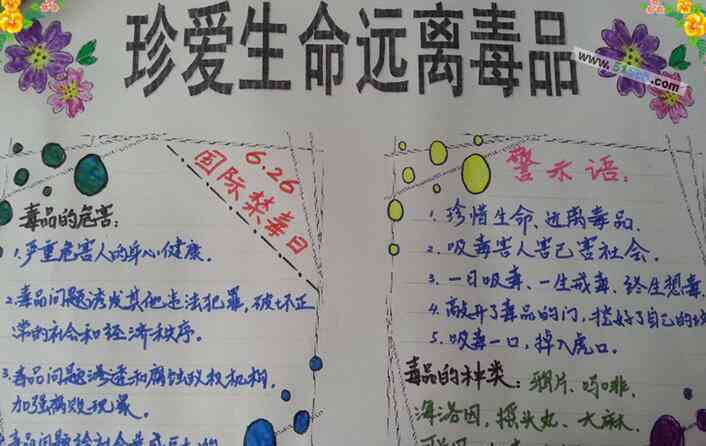 珍爱生命远离毒品
6.26
国际禁毒日
毒品的危害:
1.严重危害人的身心健康.
2.毒品问题诱发其他违法犯罪,破坏正
常的社会和经济秩序。
3.毒品问题渗透和腐蚀政权机构,
加强腐败现象。
毒品问题给社会造成巨大的
警示语:
1.珍惜生命、远离毒品.
2.吸毒害人害己害社会.
3.一日吸毒、一生戒毒、终生想毒
4.敞开了毒品的门,挖好了自己的
5.吸毒一口,掉入虎口.
毒品的种类:鸦片、吗啡、
海洛因,摇头丸、大麻,